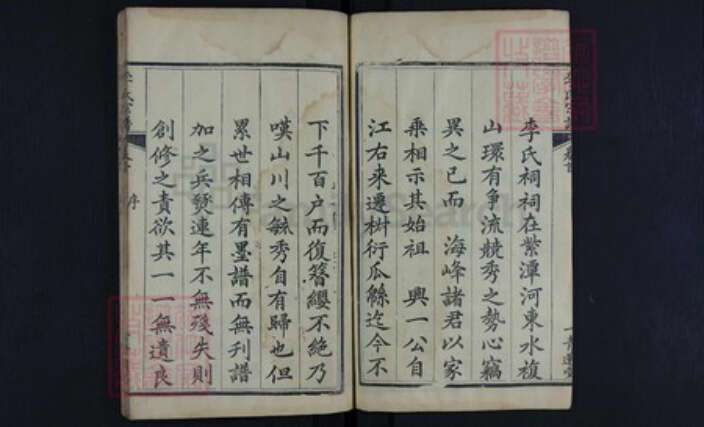 李氏祠祠在紫潭河東水複
山環有爭流競秀之勢心竊
異之已而 海峰諸君以家
乘相示其始祖 興一公自
江右來遷樹衍瓜緜迄今不
下千百户而復簪纓不絶乃
嘆山川之毓秀自有歸也但
累世相傳有墨譜而無刊譜
加之兵燹連年不無殘失則
創修之責欲其一一無遺良
序